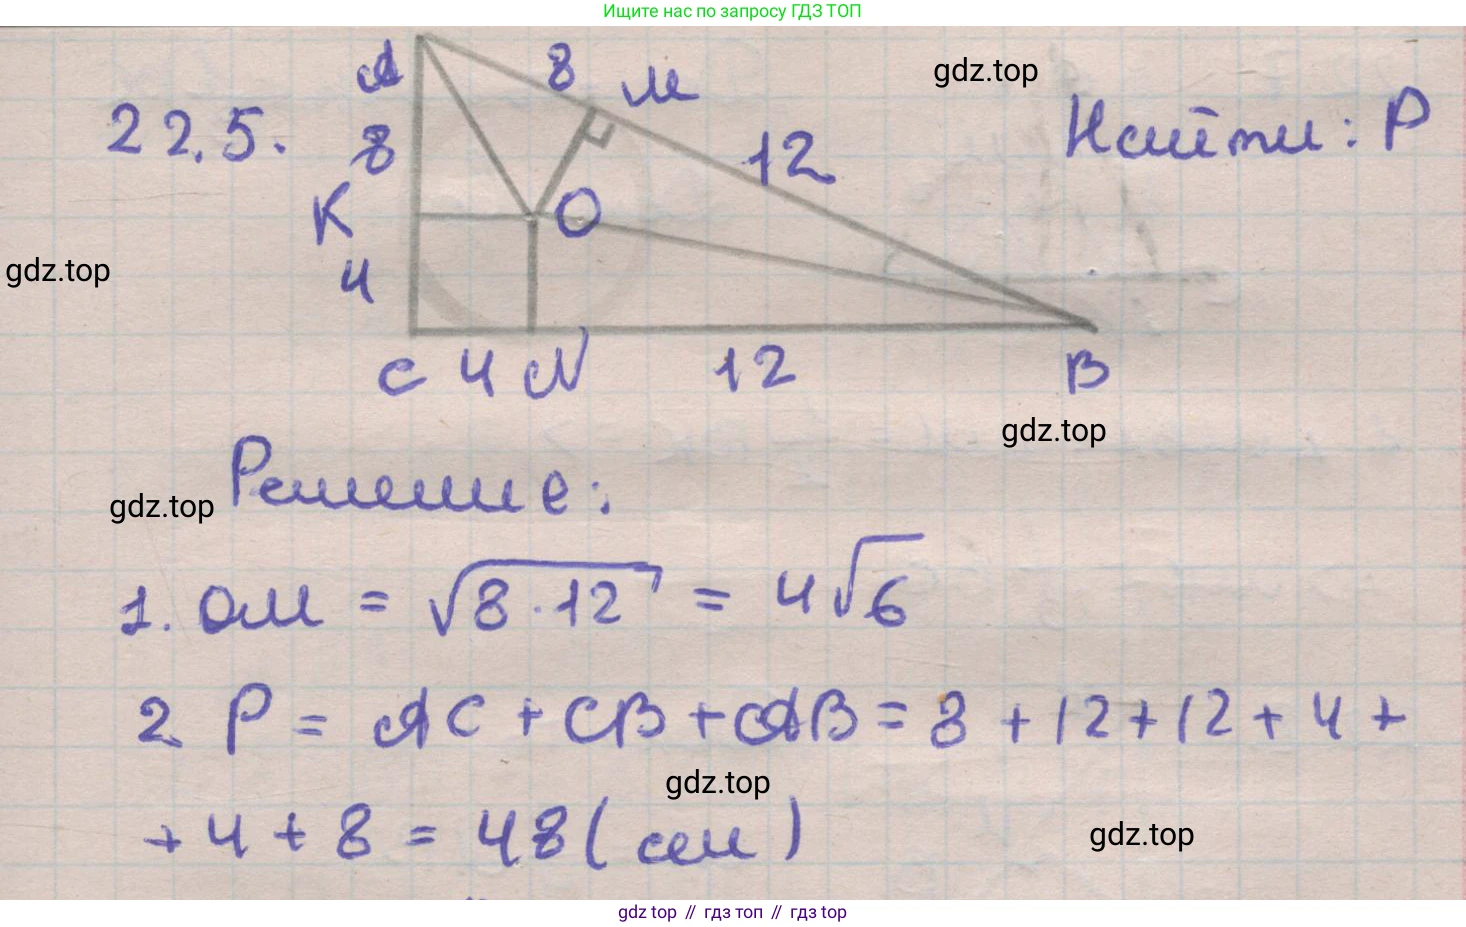 Ищите нас по запросу ГДЗ ТОП
22.5.
A
8
M
gdz.top
Найти: P
8
12
K
O
gdz.top
4
C 4 N 12 B
gdz.top
Решение:
gdz.top
1. OM = √8·12 = 4√6
2. P = AC + CB + AB = 8 + 12 + 12 + 4 +
gdz.top
+ 4 + 8 = 48 (см)
gdz.top
gdz top // гдз топ // гдз top